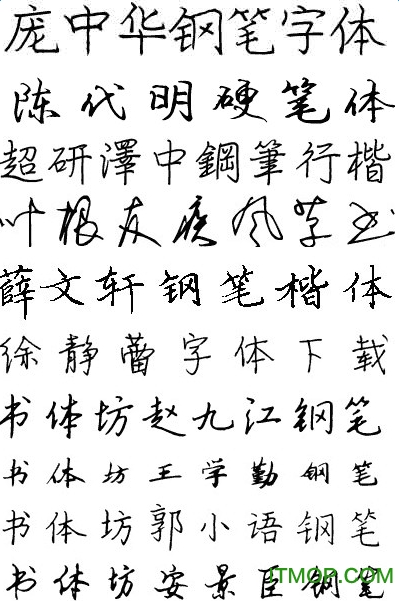 庞中华钢笔字体
陈代明硬笔体
超研澤中鋼筆行楷
叶根友疾风草书
薛文轩钢笔楷体
徐静蕾字体下载
书体坊赵九江钢笔
书体坊王学勤钢笔
书体坊郭小语钢笔
书体坊安景臣钢笔
ITMOP.COM